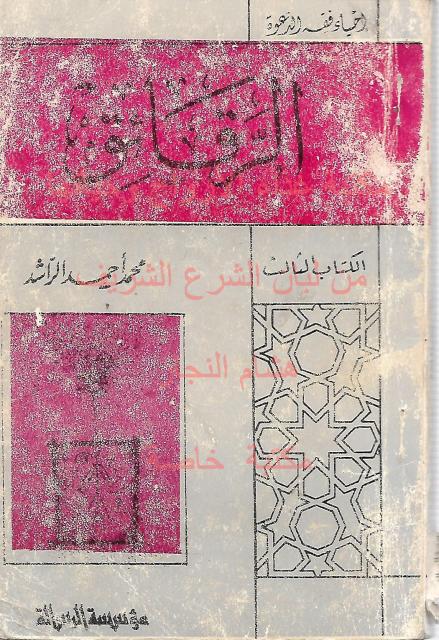 احياء فقه الدعوة
الرقائق
الكتاب الثالث
محمد أحمد الراشد
هشام النجار
مكتبة خاصة
مؤسسة الرسالة